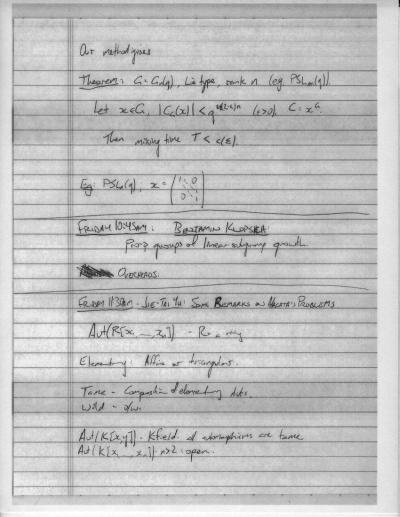 Our method gives
Theorem: G = Gn(q), Lie type, rank n (eg. PSLn(q)).
Let x∈G, |CG(x)| < q (ε>0). C = xG.
Then mixing time T < c(ε).
Eg: PSLn(q), x = (1 0 0 1)
FRIDAY 10:45AM: BENJAMIN KLOPSCH
Pro-p groups of linear subgroup growth
OVERHEADS.
FRIDAY 11:30am - JIE-TAI YU: SOME REMARKS ON NAGATA'S PROBLEMS
Aut(R[x1, ..., xn]) - R a ring
Elementary: Affine or triangular.
Tame - Composition of elementary auts.
Wild - o/w.
Aut(K[x,y]) - K field. all automorphisms are tame
Aut(K[x1 ... xn]) n>2: open.